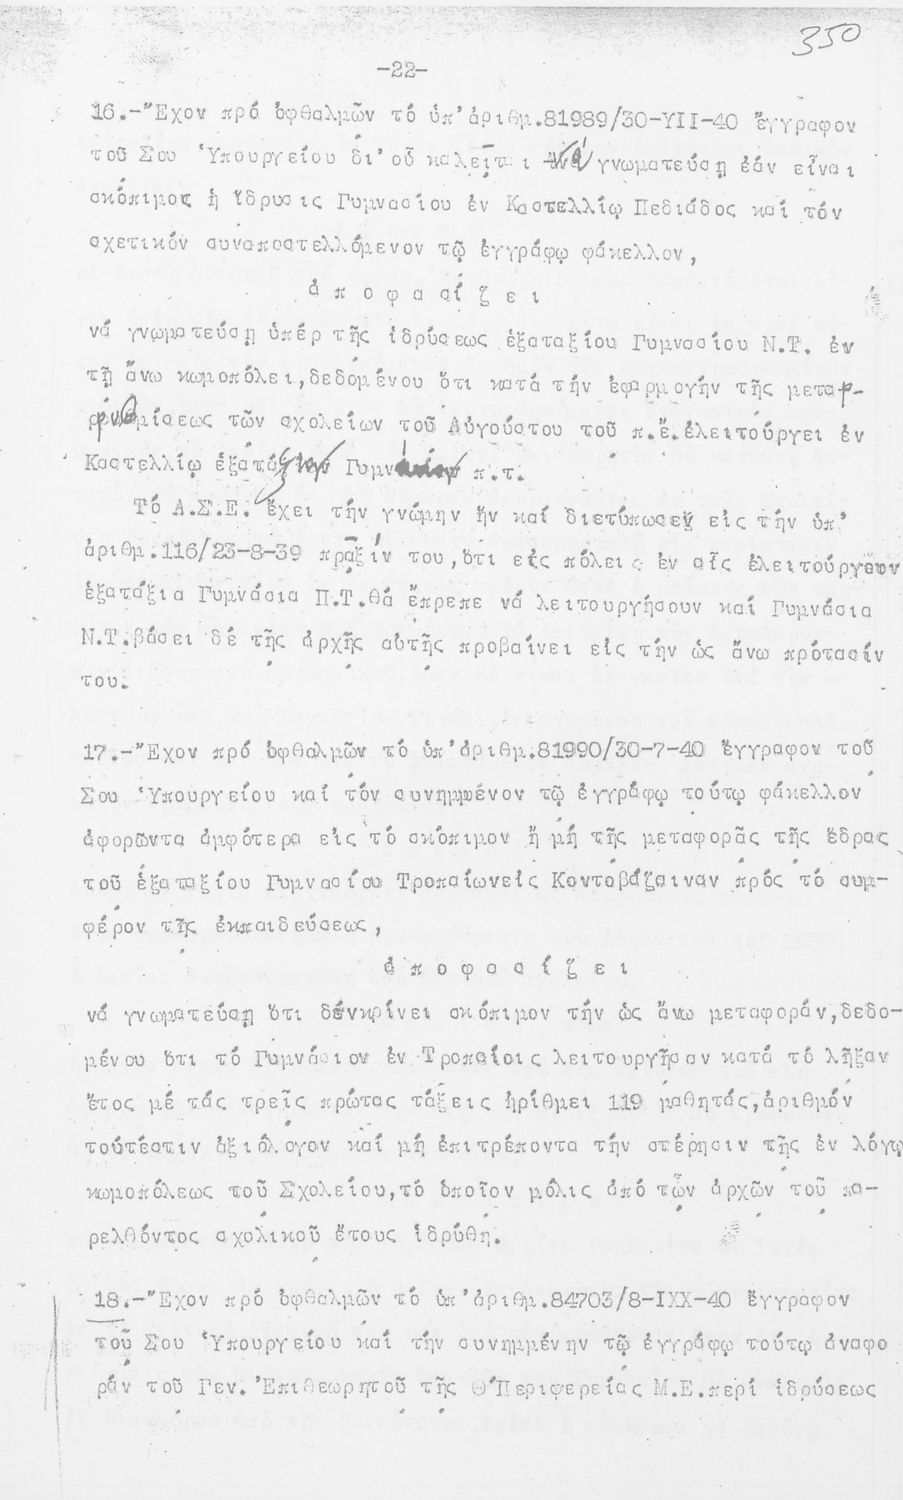 350
-22-
16.-Ἔχον πρό ὀφθαλμῶν τό ὑπ' ἀριθμ.81989/30-VII-40 ἔγγραφον
τοῦ Σου Ὑπουργείου δι' οὗ καλεῖται νά γνωματεύσῃ ἐάν εἶναι
σκόπιμος ἡ ἵδρυσις Γυμνασίου ἐν Καστελλίῳ Πεδιάδος καί τόν
σχετικόν συναποστελλόμενον τῷ ἐγγράφῳ φάκελλον,
ἀ π ο φ α σ ί ζ ε ι
νά γνωματεύσῃ ὑπέρ τῆς ἱδρύσεως ἑξαταξίου Γυμνασίου Ν.Τ. ἐν
τῇ ἄνω κωμοπόλει,δεδομένου ὅτι κατά τήν ἐφαρμογήν τῆς μεταρ-
ρυθμίσεως τῶν σχολείων τοῦ Αὐγούστου τοῦ π.ἔ.ἐλειτούργει ἐν
Καστελλίῳ ἑξατάξιον Γυμνάσιον π.τ.
Τό Α.Σ.Ε. ἔχει τήν γνώμην ἥν καί διετύπωσεν εἰς τήν ὑπ'
ἀριθμ.116/23-8-39 πρᾶξίν του,ὅτι εἰς πόλεις ἐν αἷς ἐλειτούργουν
ἑξατάξια Γυμνάσια Π.Τ.θά ἔπρεπε νά λειτουργήσουν καί Γυμνάσια
Ν.Τ.βάσει δέ τῆς ἀρχῆς αὐτῆς προβαίνει εἰς τήν ὡς ἄνω πρότασίν
του.
17.-Ἔχον πρό ὀφθαλμῶν τό ὑπ' ἀριθμ.81990/30-7-40 ἔγγραφον τοῦ
Σου Ὑπουργείου καί τόν συνημμένον τῷ ἐγγράφῳ τούτῳ φάκελλον
ἀφορῶντα ἀμφότερα εἰς τό σκόπιμον ἤ μή τῆς μεταφορᾶς τῆς ἕδρας
τοῦ ἑξαταξίου Γυμνασίου Τροπαίωνείς Κοντοβάζαιναν πρός τό συμ-
φέρον τῆς ἐκπαιδεύσεως,
ἀ π ο φ α σ ί ζ ε ι
νά γνωματεύσῃ ὅτι δένκρίνει σκόπιμον τήν ὡς ἄνω μεταφοράν,δεδο-
μένου ὅτι τό Γυμνάσιον ἐν Τροπαίοις λειτουργῆσαν κατά τό λῆξαν
ἔτος μέ τάς τρεῖς πρώτας τάξεις ἠρίθμει 119 μαθητάς,ἀριθμόν
τουτέστιν ἀξιόλογον καί μή ἐπιτρέποντα τήν στέρησιν τῆς ἐν λόγῳ
κωμοπόλεως τοῦ Σχολείου,τό ὁποῖον μόλις ἀπό τῶν ἀρχῶν τοῦ πα-
ρελθόντος σχολικοῦ ἔτους ἱδρύθη.
18.-Ἔχον πρό ὀφθαλμῶν τό ὑπ' ἀριθμ.84703/8-IXX-40 ἔγγραφον
τοῦ Σου Ὑπουργείου καί τήν συνημμένην τῷ ἐγγράφῳ τούτῳ ἀναφο
ράν τοῦ Γεν. Ἐπιθεωρητοῦ τῆς Θ' Περιφερείας Μ.Ε.περί ἱδρύσεως